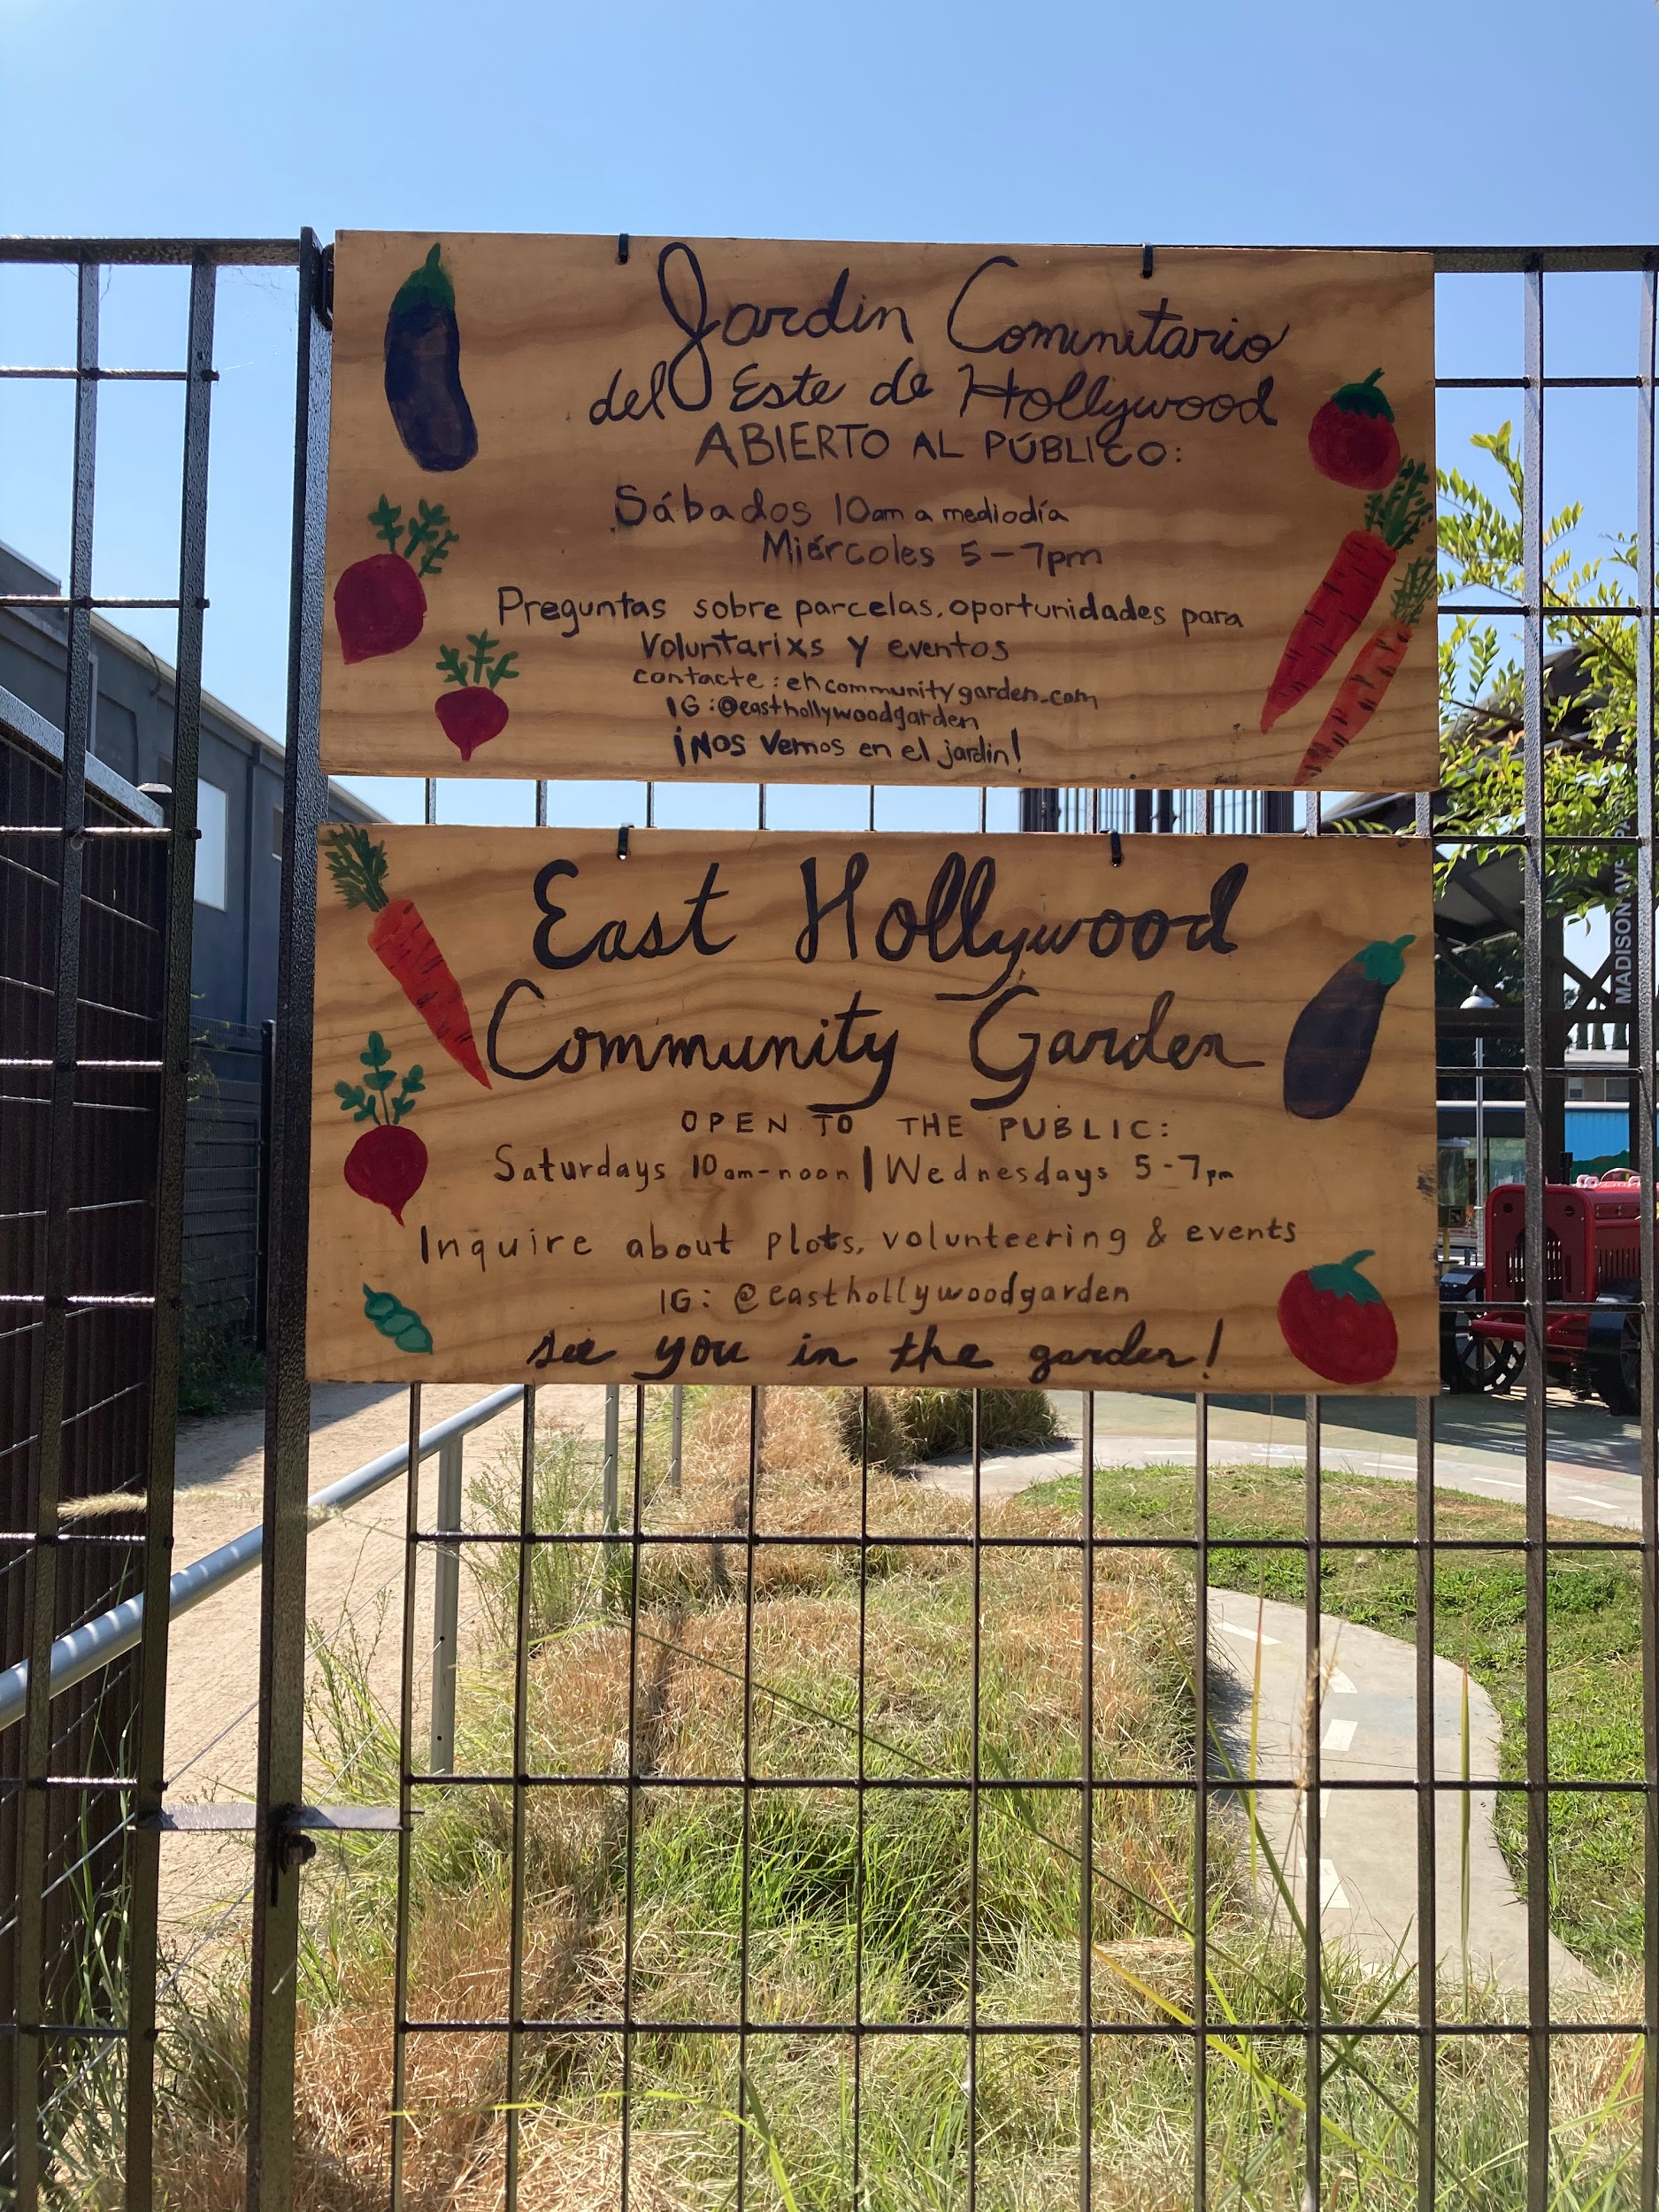 Jardin Comunitario
del Este de Hollywood
ABIERTO AL PÚBLICO:
Sábados 10am a mediodía
Miércoles 5-7pm
Preguntas sobre parcelas, oportunidades para
Voluntarixs y eventos
contacte: ehcommunitygarden.com
IG: @easthollywoodgarden
¡Nos Vemos en el jardín!
East Hollywood
Community Garden
OPEN TO THE PUBLIC:
Saturdays 10am-noon | Wednesdays 5-7pm
Inquire about plots, volunteering & events
IG: @easthollywoodgarden
see you in the garden!
MADISON AVE